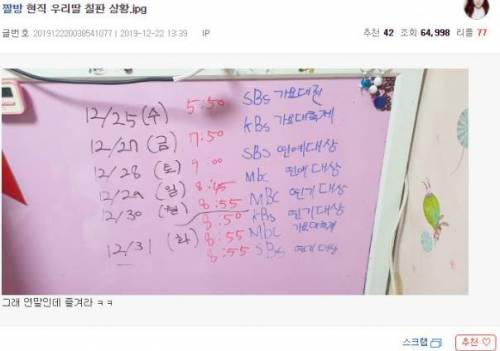 짤방 현직 우리딸 칠판 상황.jpg
글번호 201912220038541077 | 2019-12-22 13:39 IP
추천 42 조회 64,998 리플 77
12/25 (수) 5:50 SBS 가요대전
12/27 (금) 7:50 KBS 가요대축제
12/28 (토) 9:00 SBS 연예대상
12/29 (일) 8:45 MBC 연예대상
12/30 (월) 8:55 MBC 연기대상
12/31 (화) 8:50 KBS 연기대상
8:55 MBC 가요대축제
8:55 SBS 연기대상
그래 연말인데 즐겨라 ㅋㅋ
스크랩
추천 ♡